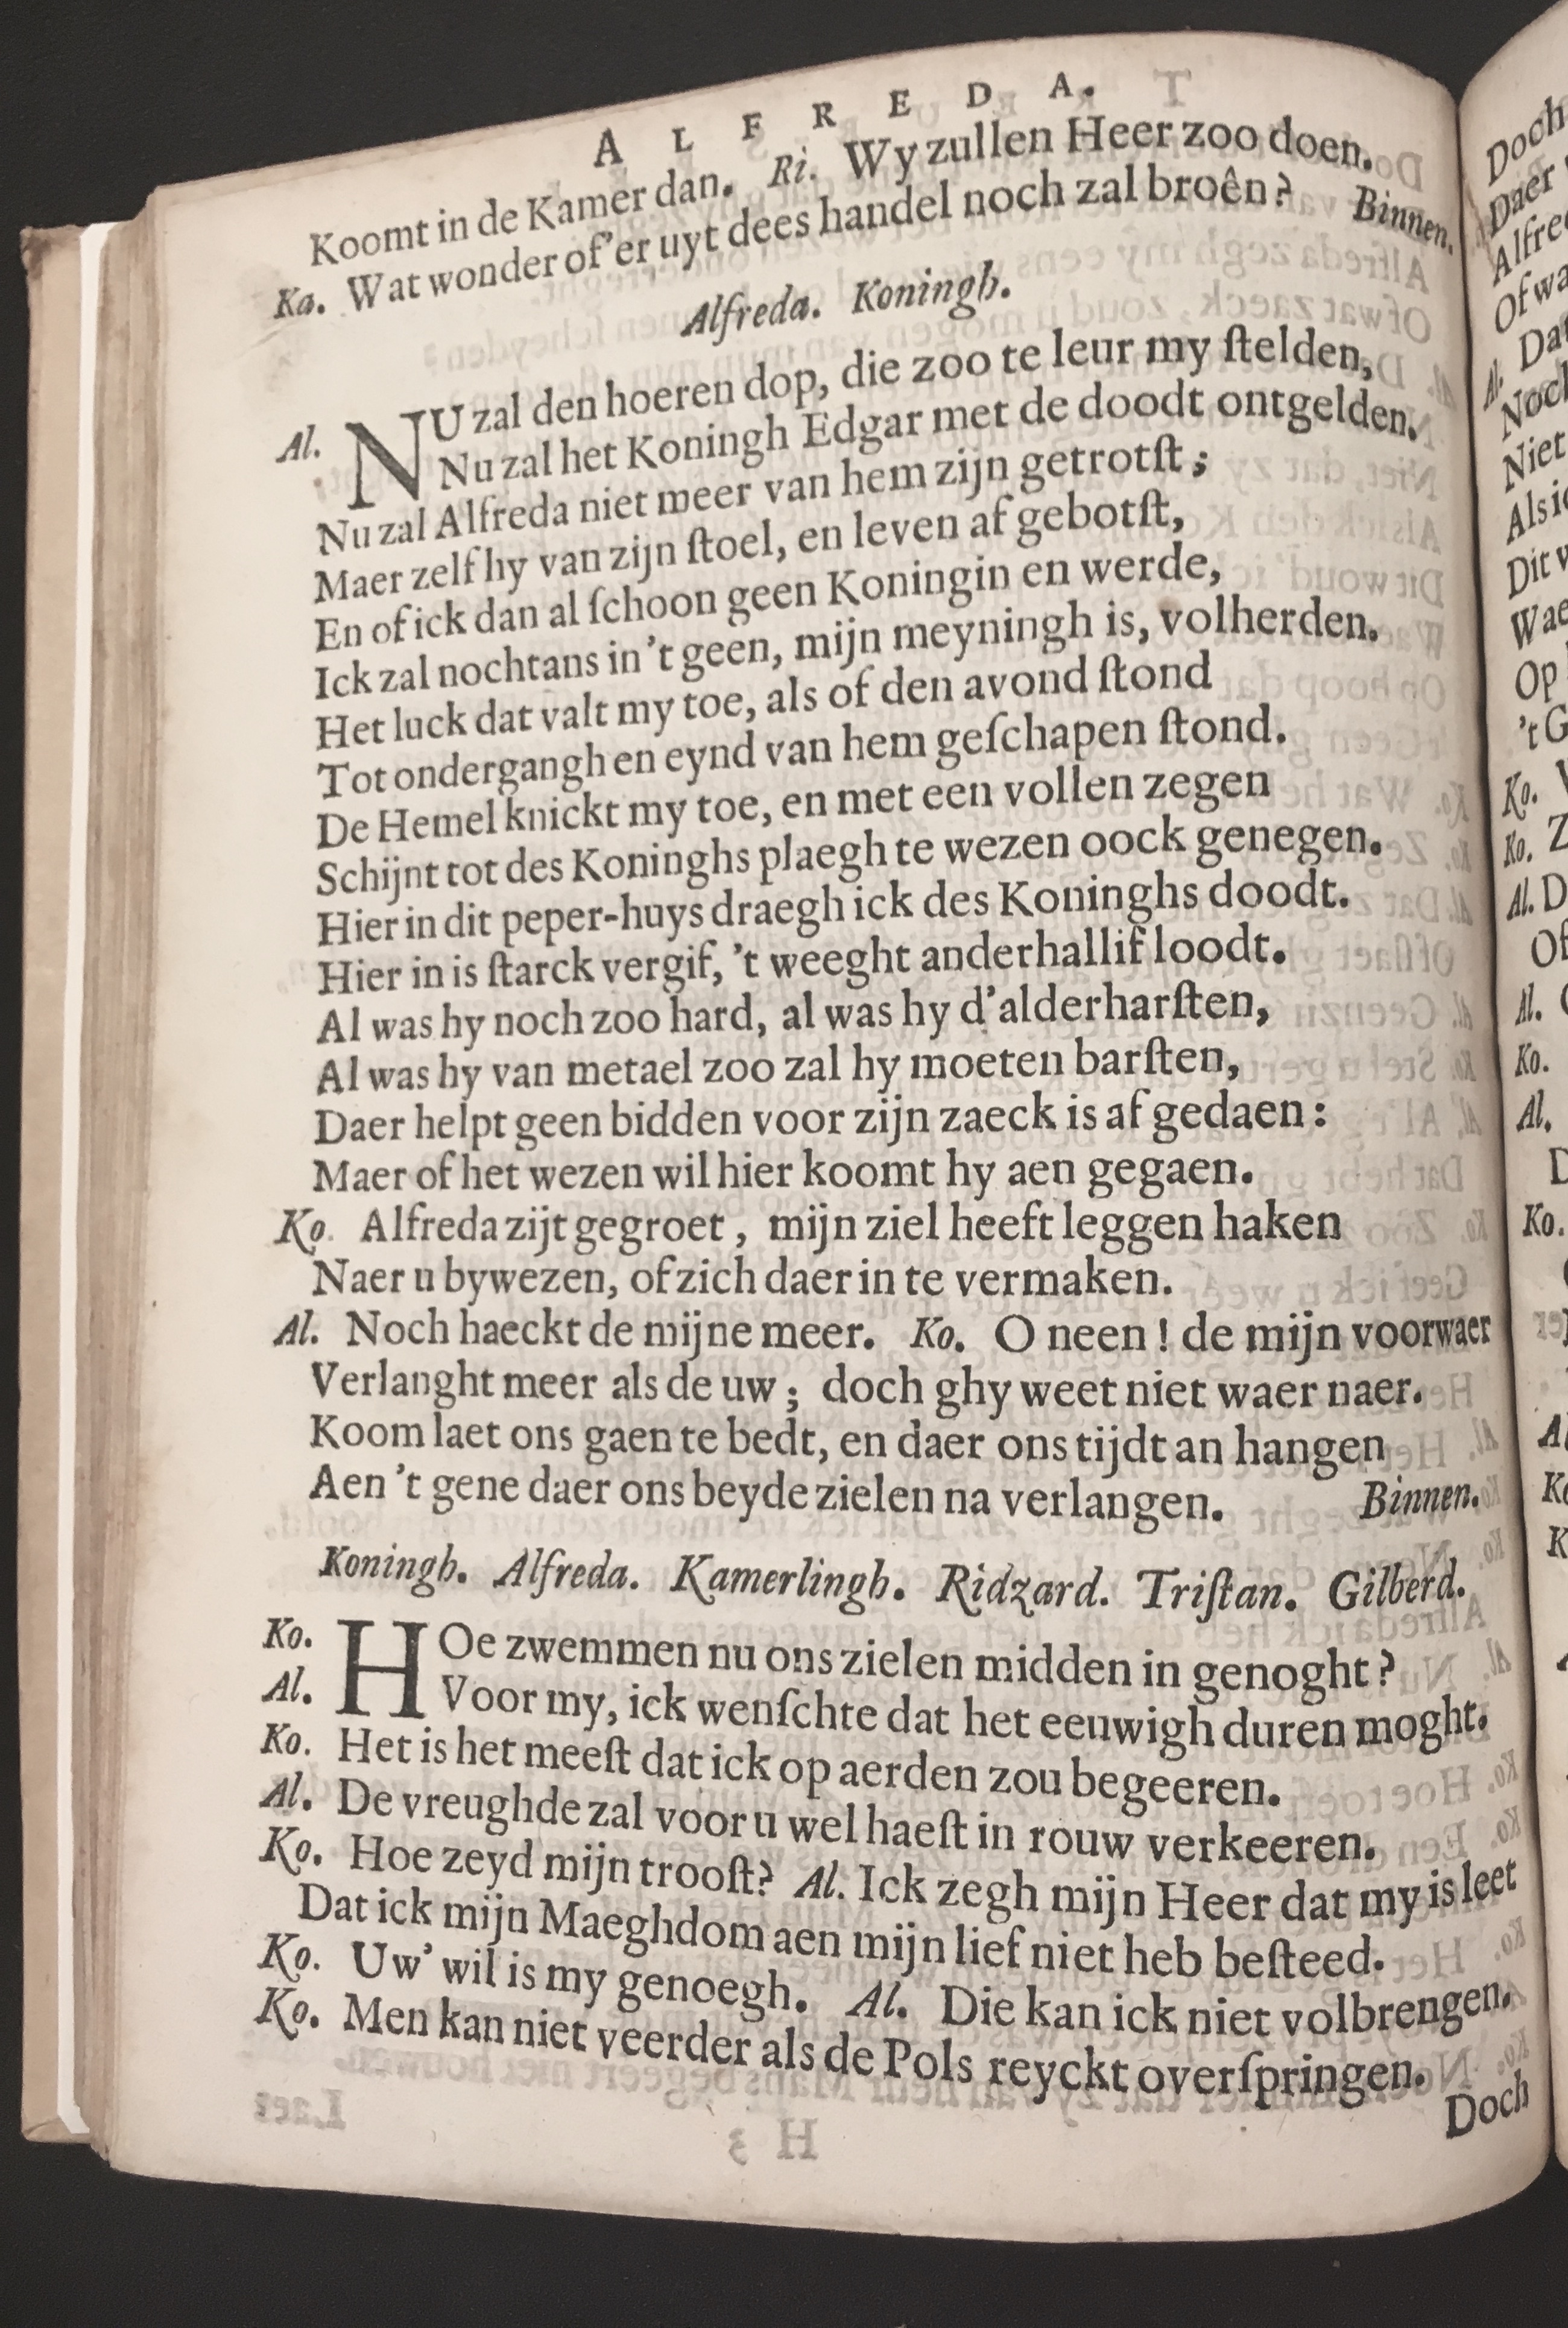 ALFREDA.
Koomt in de Kamer dan. Ri. Wy zullen Heer zoo doen.
Ka. Wat wonder of'er uyt dees handel noch zal broên? Binnen.
Alfreda. Koningh.
Al. NU zal den hoeren dop, die zoo te leur my ſtelden,
Nu zal het Koningh Edgar met de doodt ontgelden.
Nu zal Alfreda niet meer van hem zijn getrotſt;
Maer zelf hy van zijn ſtoel, en leven af gebotſt,
En of ick dan al ſchoon geen Koningin en werde,
Ick zal nochtans in 't geen, mijn meyningh is, volherden.
Het luck dat valt my toe, als of den avond ſtond
Tot ondergangh en eynd van hem geſchapen ſtond.
De Hemel knickt my toe, en met een vollen zegen
Schijnt tot des Koninghs plaegh te wezen oock genegen.
Hier in dit peper-huys draegh ick des Koninghs doodt.
Hier in is ſtarck vergif, 't weeght anderhallif loodt.
Al was hy noch zoo hard, al was hy d'alderharſten,
Al was hy van metael zoo zal hy moeten barſten,
Daer helpt geen bidden voor zijn zaeck is af gedaen:
Maer of het wezen wil hier koomt hy aen gegaen.
Ko. Alfreda zijt gegroet, mijn ziel heeft leggen haken
Naer u bywezen, of zich daer in te vermaken.
Al. Noch haeckt de mijne meer. Ko. O neen! de mijn voorwaer
Verlanght meer als de uw; doch ghy weet niet waer naer.
Koom laet ons gaen te bedt, en daer ons tijdt an hangen
Aen 't gene daer ons beyde zielen na verlangen. Binnen.
Koningh. Alfreda. Kamerlingh. Ridzard. Triſtan. Gilberd.
Ko. HOe zwemmen nu ons zielen midden in genoght?
Al. Voor my, ick wenſchte dat het eeuwigh duren moght.
Ko. Het is het meeſt dat ick op aerden zou begeeren.
Al. De vreughde zal voor u wel haeſt in rouw verkeeren.
Ko. Hoe zeyd mijn trooſt? Al. Ick zegh mijn Heer dat my is leet
Dat ick mijn Maeghdom aen mijn lief niet heb beſteed.
Ko. Uw' wil is my genoegh. Al. Die kan ick niet volbrengen.
Ko. Men kan niet veerder als de Pols reyckt overſpringen.
Doch
Doch
Daer
Of
Al.
Noch
Niet
Als
Dit
Op
't G
Ko.
Ko. Z
Al. D
Of
Al.
Ko.
Al.
Ko.